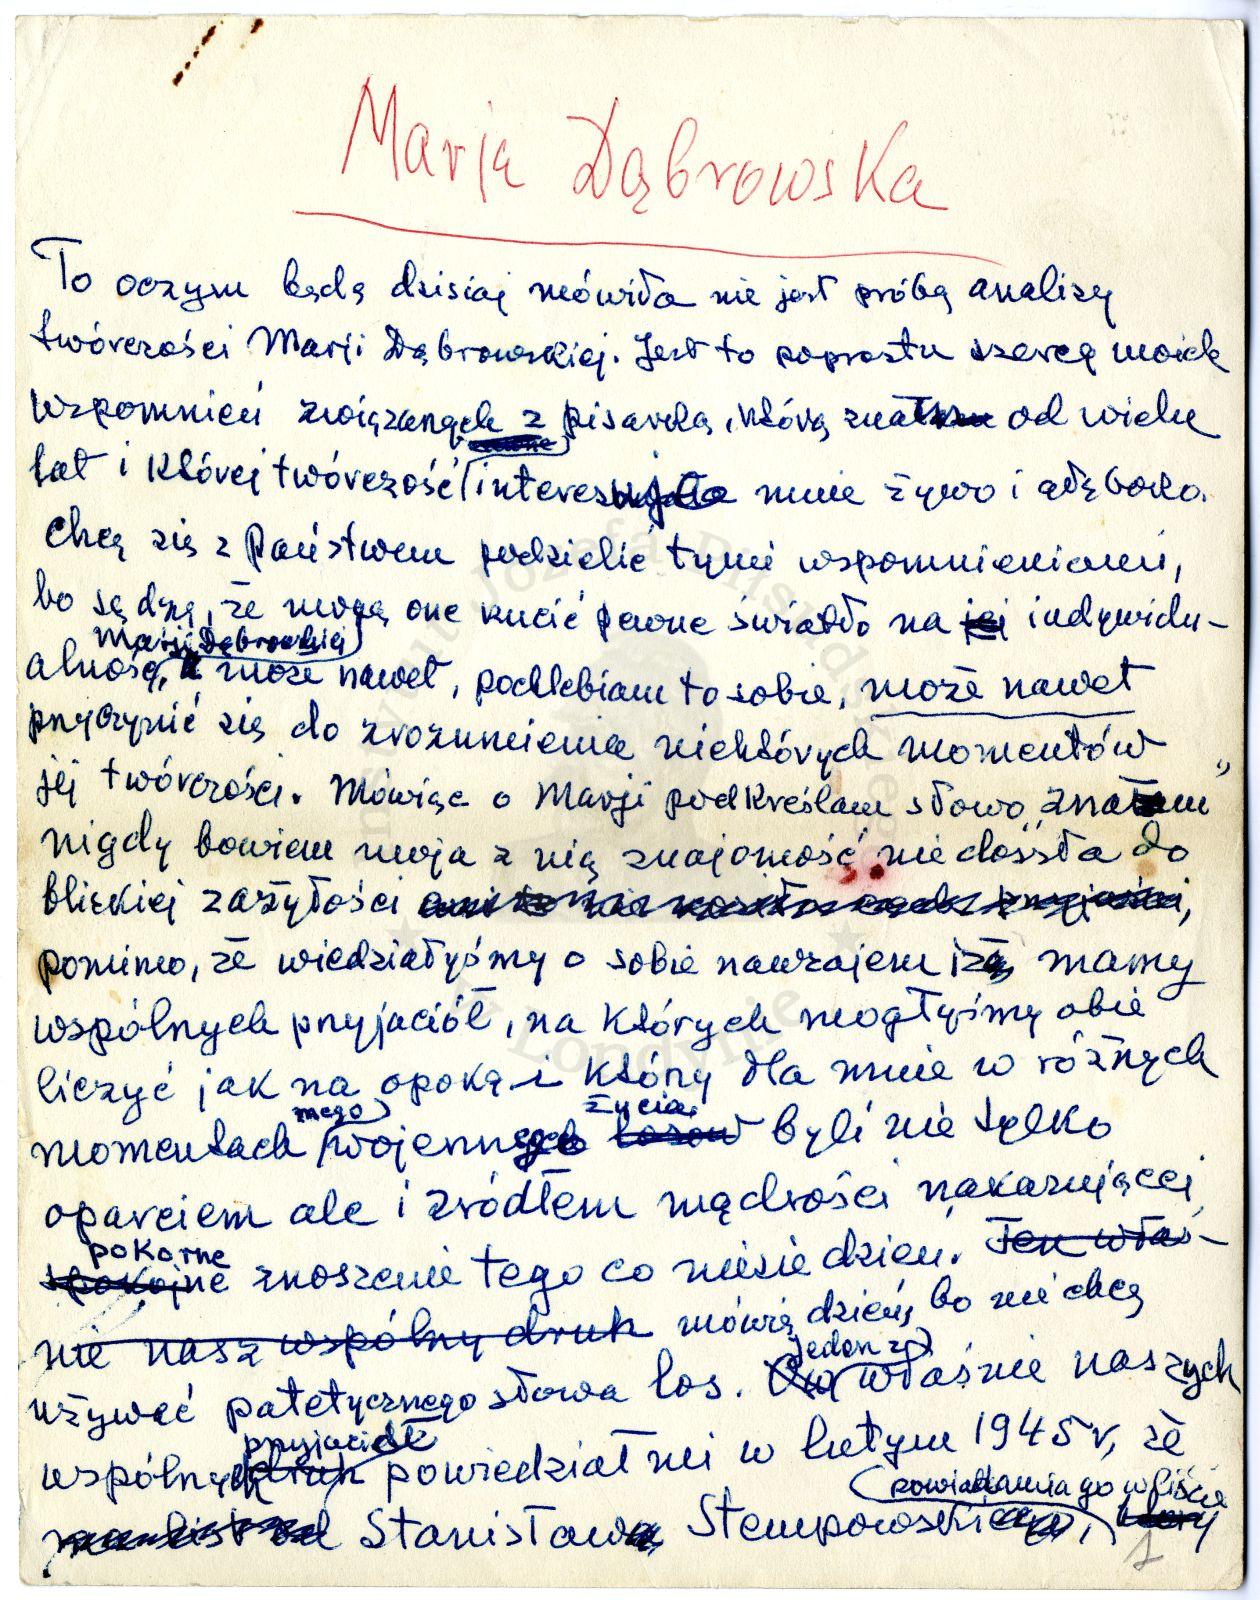 Marja Dąbrowska
To oczym będę dzisiaj mówiła nie jest próbą analizy
twórczości Marji Dąbrowskiej. Jest to poprostu szereg moich
wspomnień związanych z pisarką, którą znałam od wielu
lat i której twórczość interesująca mnie żywo i głęboko.
Chcę się z Państwem podzielić tymi wspomnieniami,
bo sądzę, że mogą one rzucić pewne światło na jej indywidu-
Marji Dąbrowskiej
alność, a może nawet, pochlebiam to sobie, może nawet
przyczynić się do zrozumienia niektórych momentów
jej twórczości. Mówiąc o Marji podkreślam słowo „znałam"
nigdy bowiem moja z nią znajomość nie doszła do
bliskiej zażyłości
pomimo, że wiedziałyśmy o sobie nawzajem i że mamy
wspólnych przyjaciół, na których mogłyśmy obie
liczyć jak na opokę i którzy dla mnie w różnych
mego życia
momentach wojennych losów byli nie tylko
oparciem ale i źródłem mądrości nakazującej
pokorne
spokojne znoszenie tego co niesie dzień. Ten właś-
nie nasz wspólny druh mówię dzień, bo nie chcę
jeden z
używać patetycznego słowa los. Ów właśnie naszych
przyjaciół
wspólnych druh powiedział mi w lutym 1945 r, że
powiadamia go w liście
Stanisława Stempowskiego, który
1
Instytut Józefa Piłsudskiego w Londynie